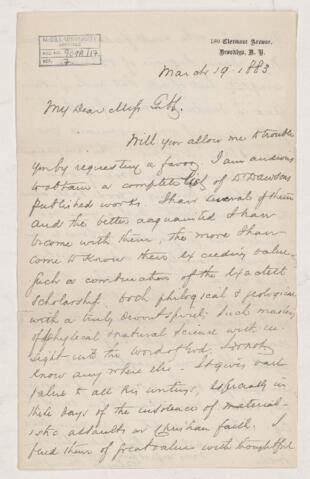 McGILL UNIVERSITY
ARCHIVES
ACC. NO. 909A/17
REF. 7
180 Clermont Avenue,
Brooklyn, N. Y.
March 19. 1883
My Dear Miss
Will you allow me to trouble
you by requesting a favor. I am anxious
to obtain a complete list of Dr Dawsons
published works. I have several of them
and the better acquainted I have
become with them, the more I have
come to know their exceeding value.
Such a combination of the exactest
scholarship, both philogical & geological
with a truly devout spirit: such mastery
of physical & natural science with in-
sight into the word of God, I do not
know any where else. It gives vast
value to all his writings, especially in
these days of the insolence of material-
istic assaults on Christian faith. I
find them of great value with thoughtful